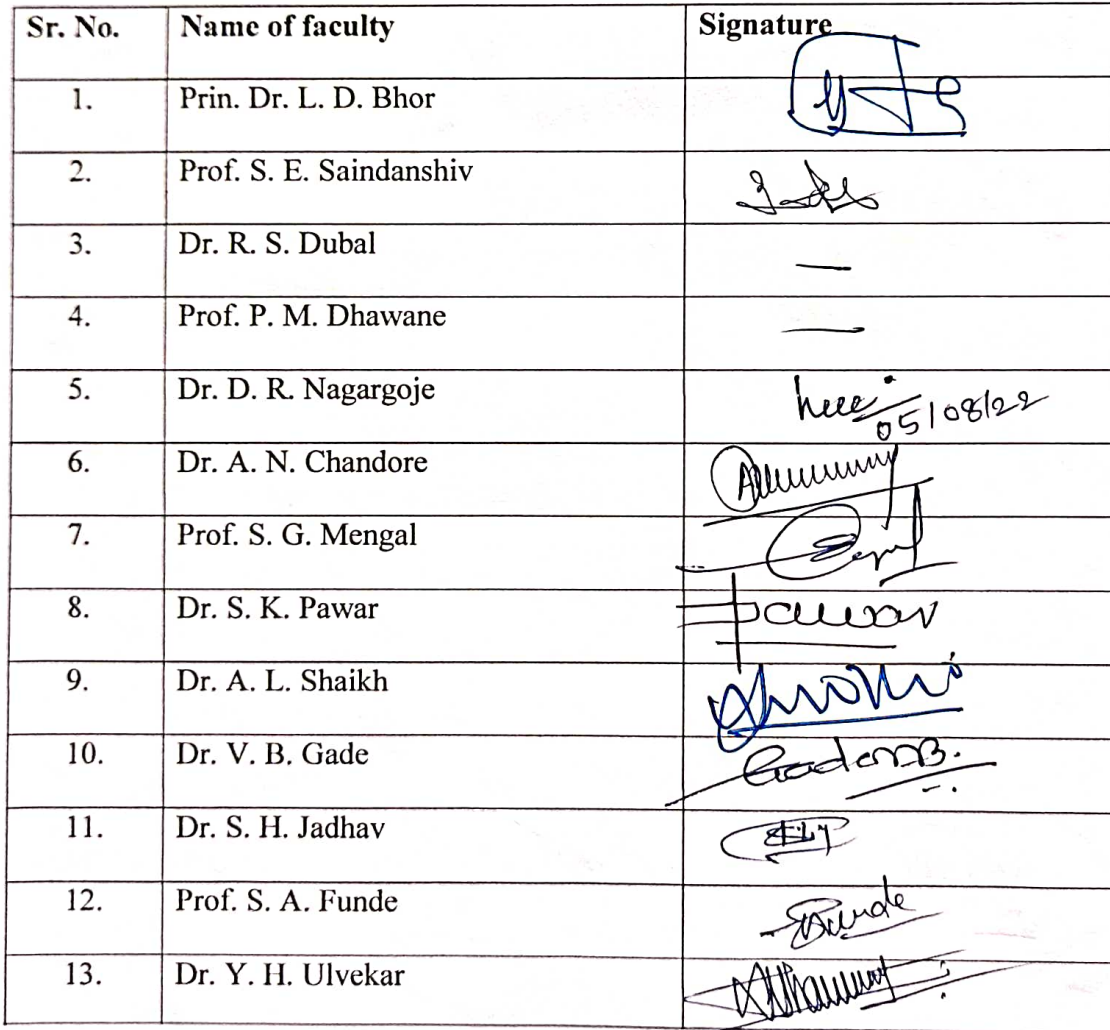 Sr. No. Name of faculty Signature
1. Prin. Dr. L. D. Bhor
2. Prof. S. E. Saindanshiv
3. Dr. R. S. Dubal —
4. Prof. P. M. Dhawane —
5. Dr. D. R. Nagargoje
05/08/22
6. Dr. A. N. Chandore
7. Prof. S. G. Mengal
8. Dr. S. K. Pawar Pawar
9. Dr. A. L. Shaikh
10. Dr. V. B. Gade
11. Dr. S. H. Jadhav
12. Prof. S. A. Funde
13. Dr. Y. H. Ulvekar